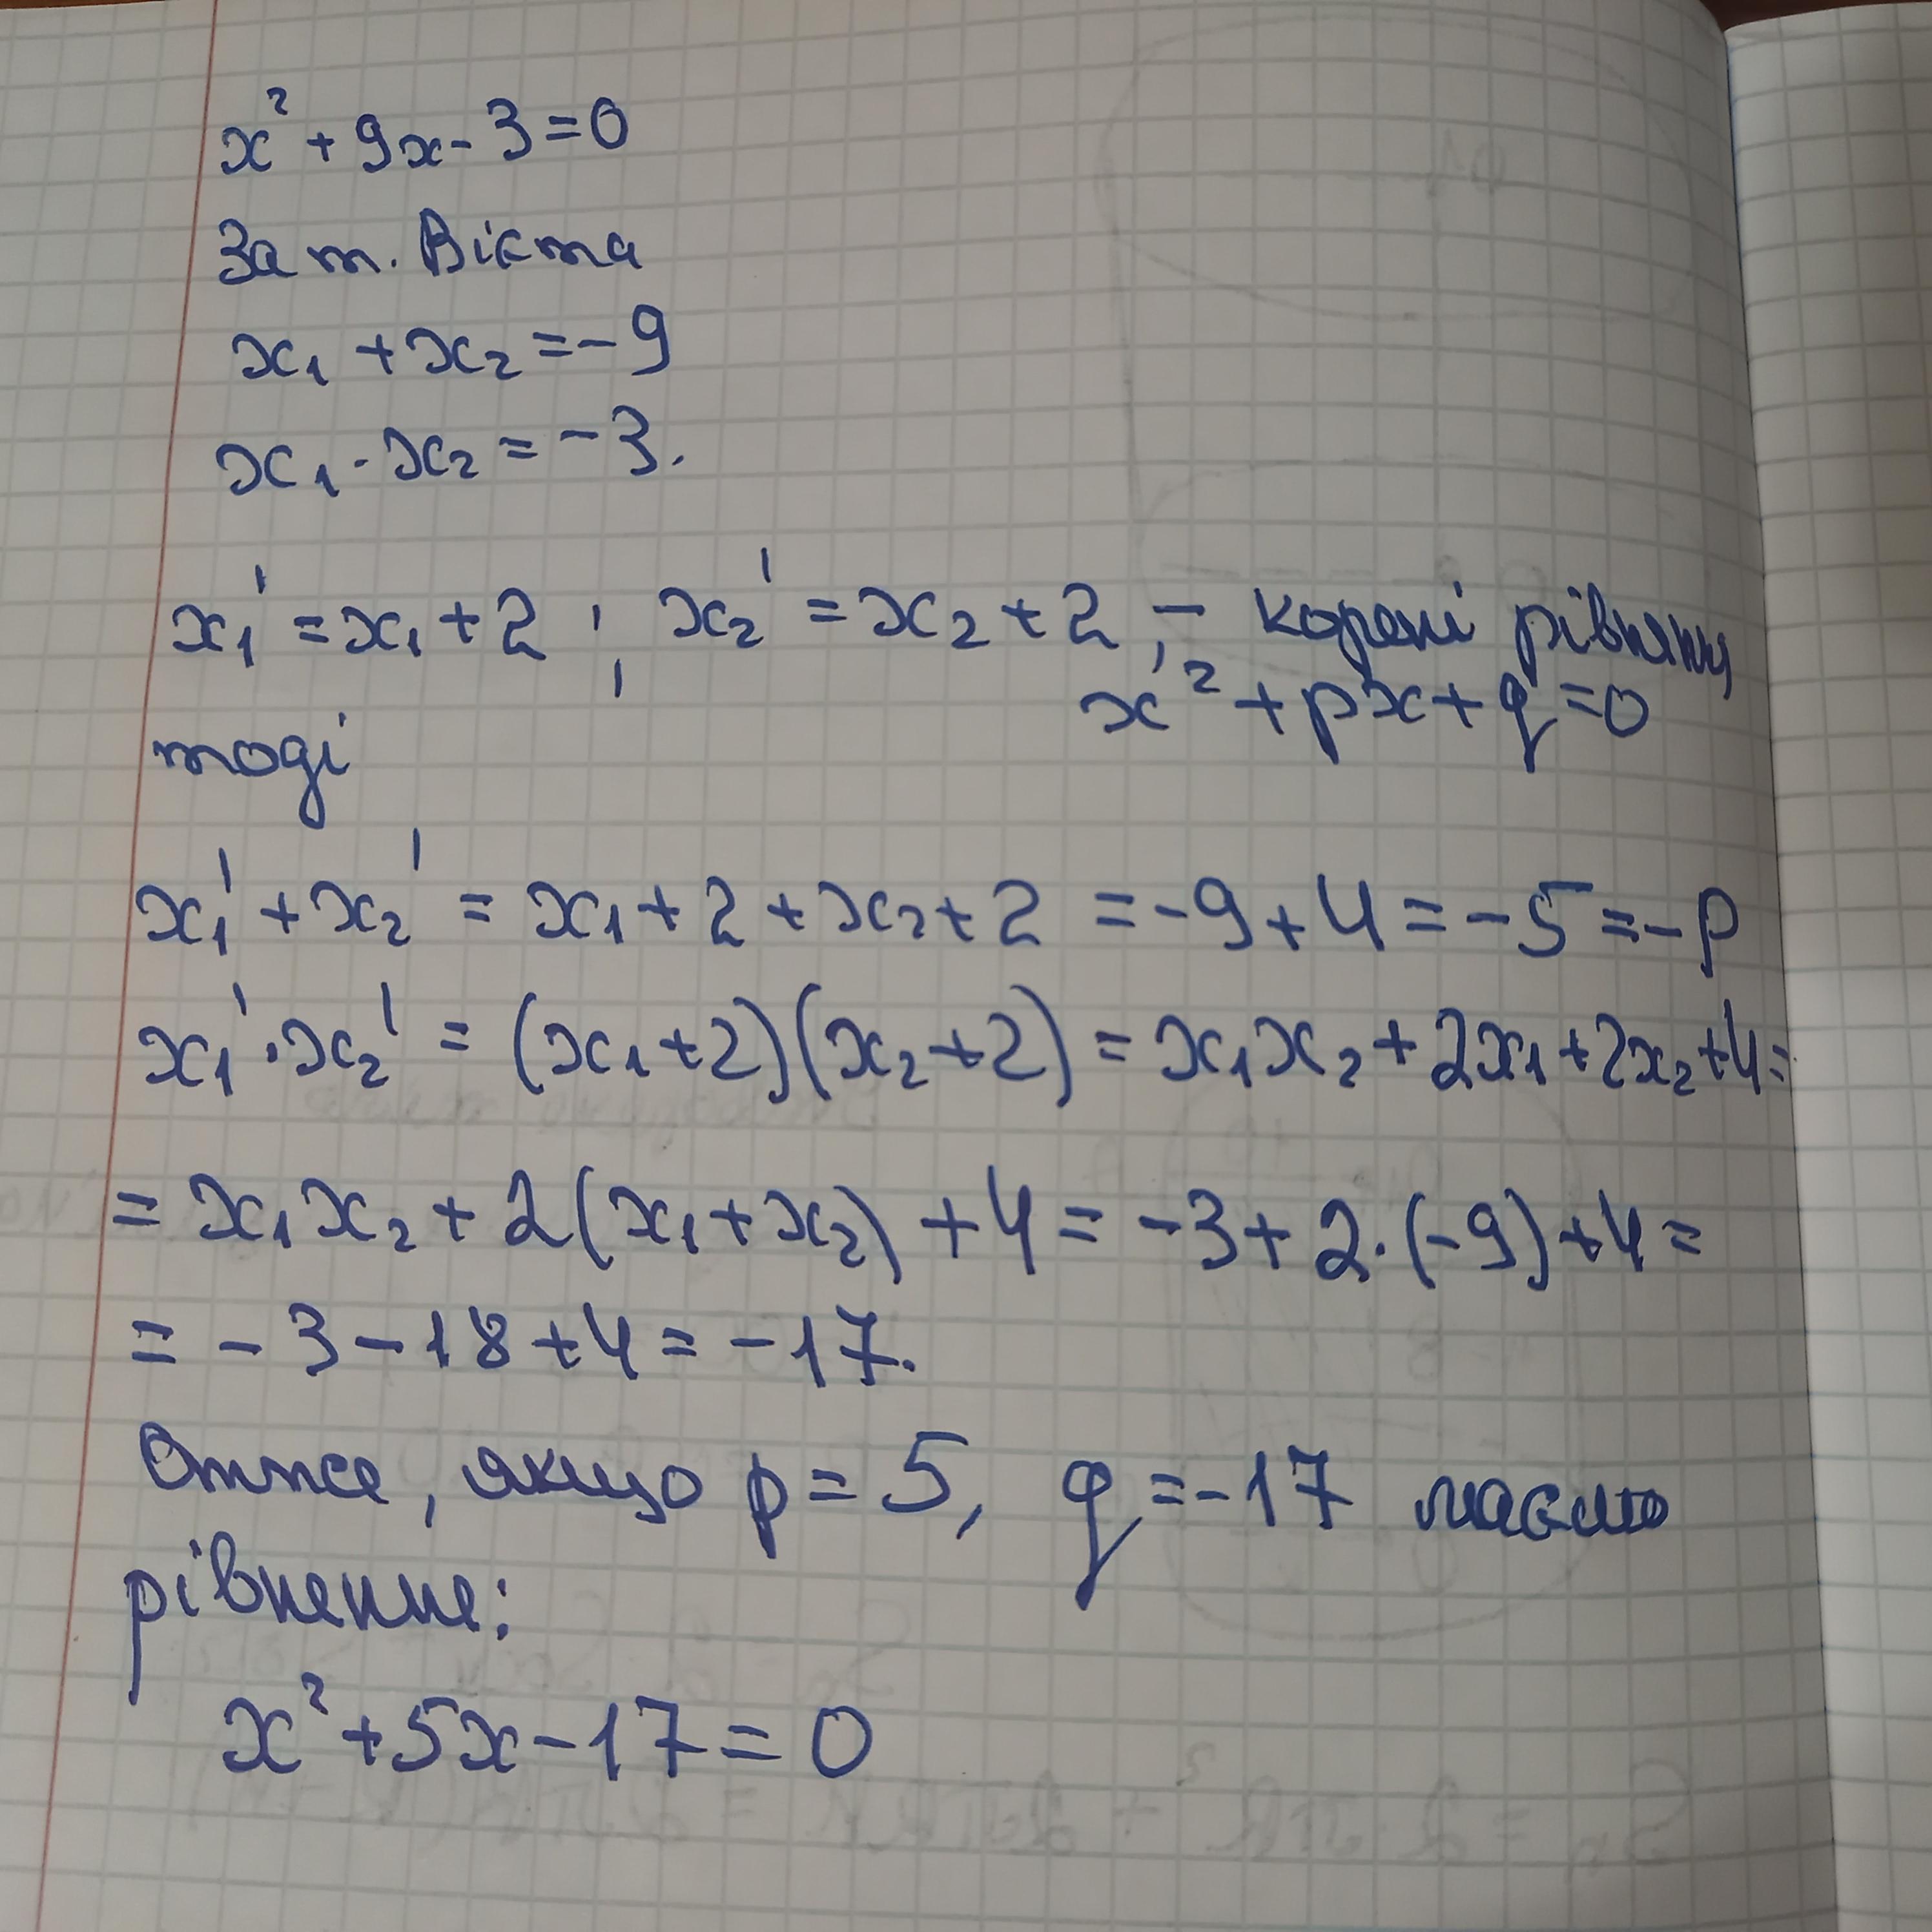 x² + 9x - 3 = 0
За т. Вієта
x₁ + x₂ = -9
x₁ · x₂ = -3.
x₁' = x₁ + 2 ; x₂' = x₂ + 2, - корені рівняння
x'² + px + q = 0
тоді
x₁' + x₂' = x₁ + 2 + x₂ + 2 = -9 + 4 = -5 = -p
x₁' · x₂' = (x₁ + 2)(x₂ + 2) = x₁x₂ + 2x₁ + 2x₂ + 4 =
= x₁x₂ + 2(x₁ + x₂) + 4 = -3 + 2·(-9) + 4 =
= -3 - 18 + 4 = -17.
Отже, якщо p = 5, q = -17 маємо
рівнення:
x² + 5x - 17 = 0